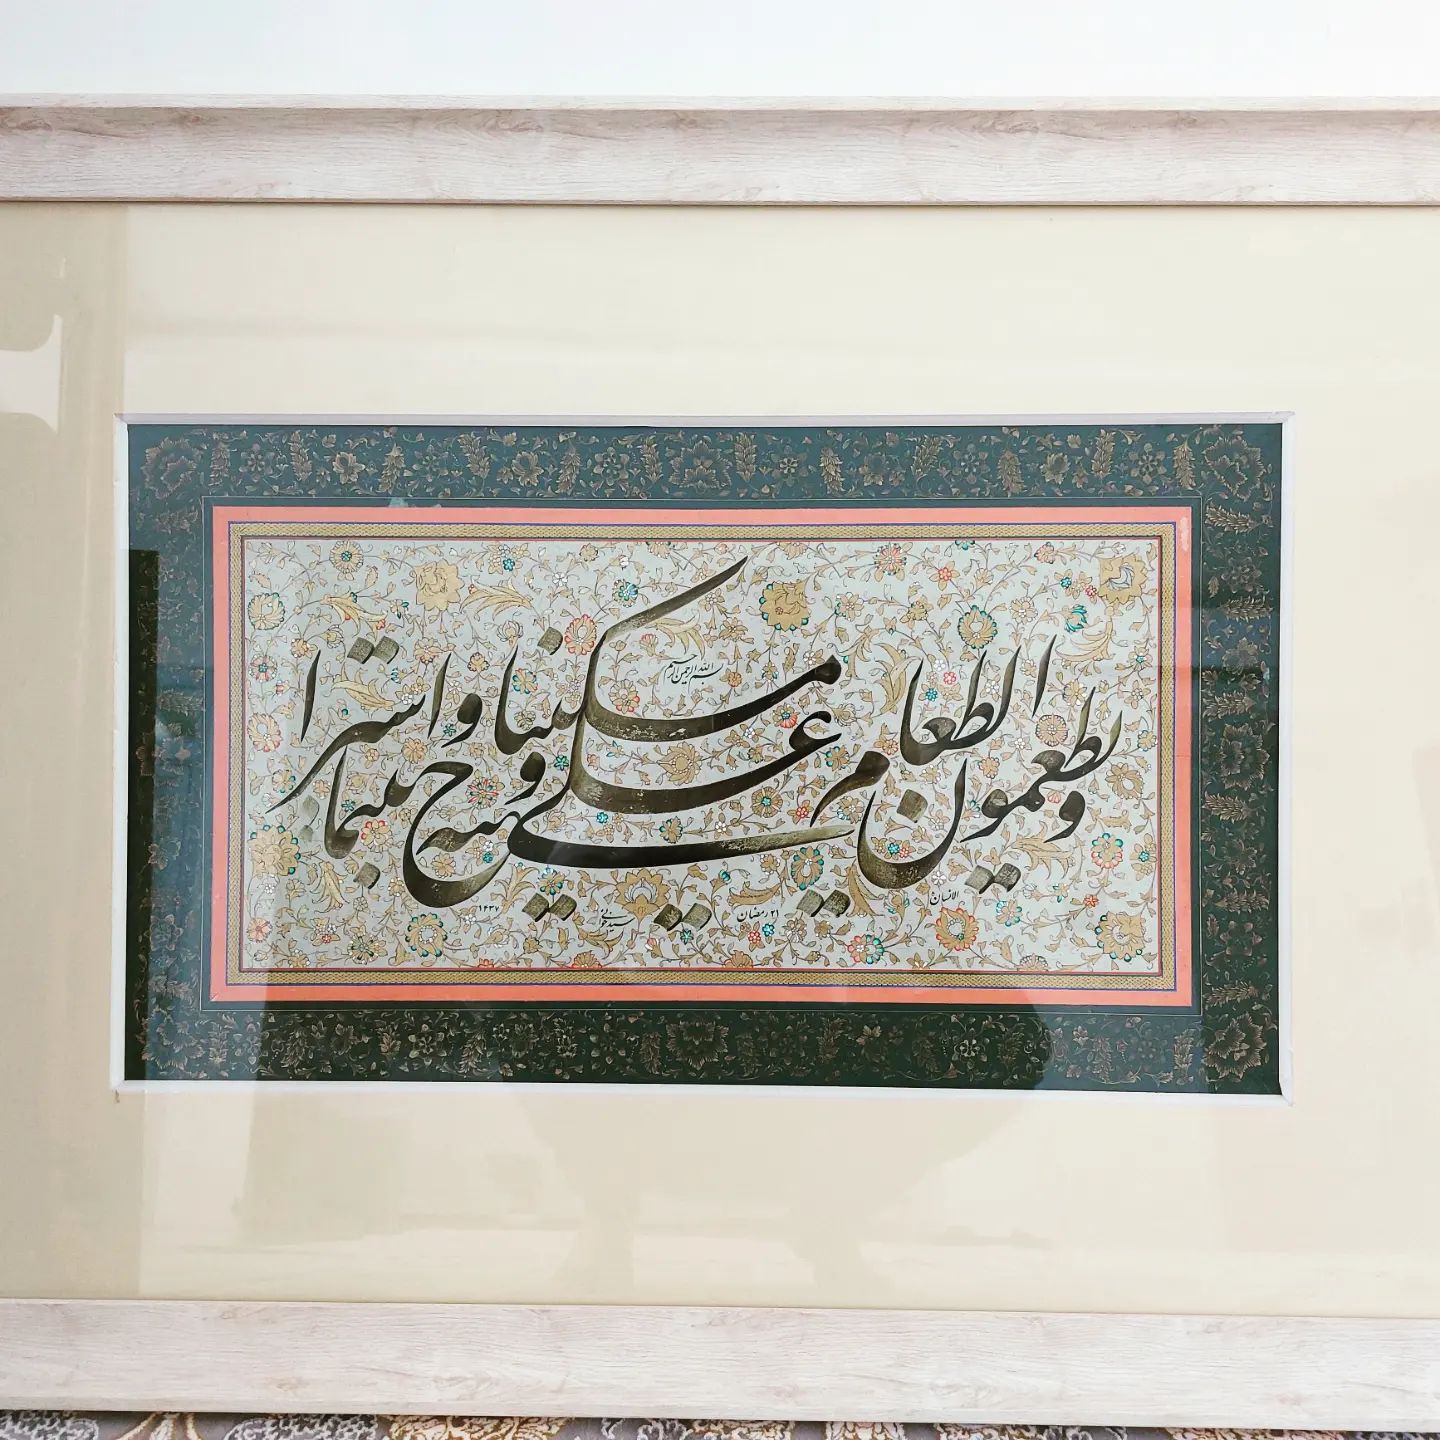 بسم الله الرحمن الرحیم
ویطعمون الطعام علی حبه مسکینا و یتیما و اسیرا
الانسان
۲۱ رمضان
۱۴۳۷